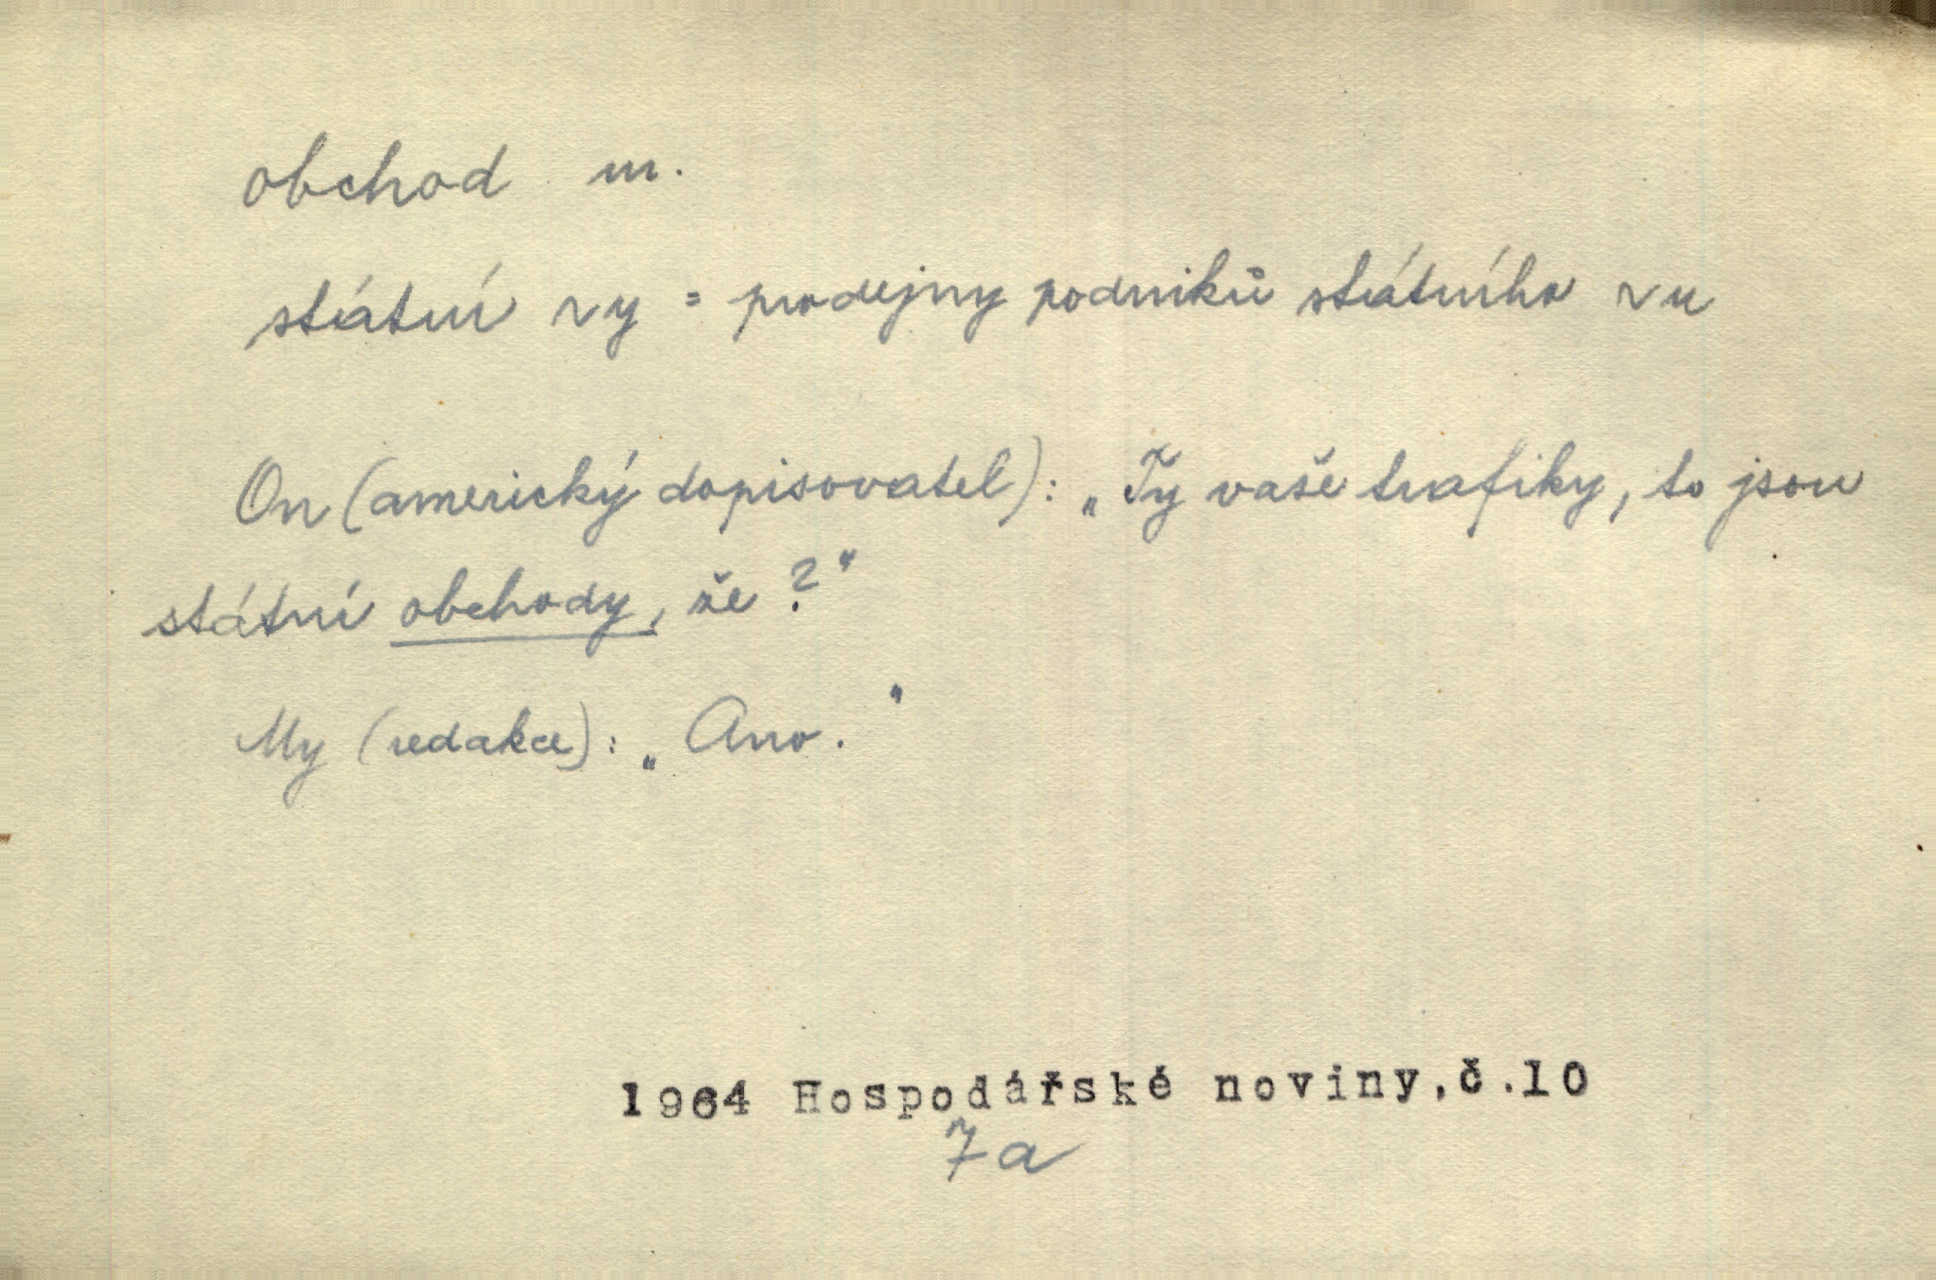 obchod m.
státní ~y = prodejny podniků státního ~u
On (americký dopisovatel): „Ty vaše trafiky, to jsou
státní obchody, že?“
My (redakce): „Ano.“
1964 Hospodářské noviny,č.10
7a